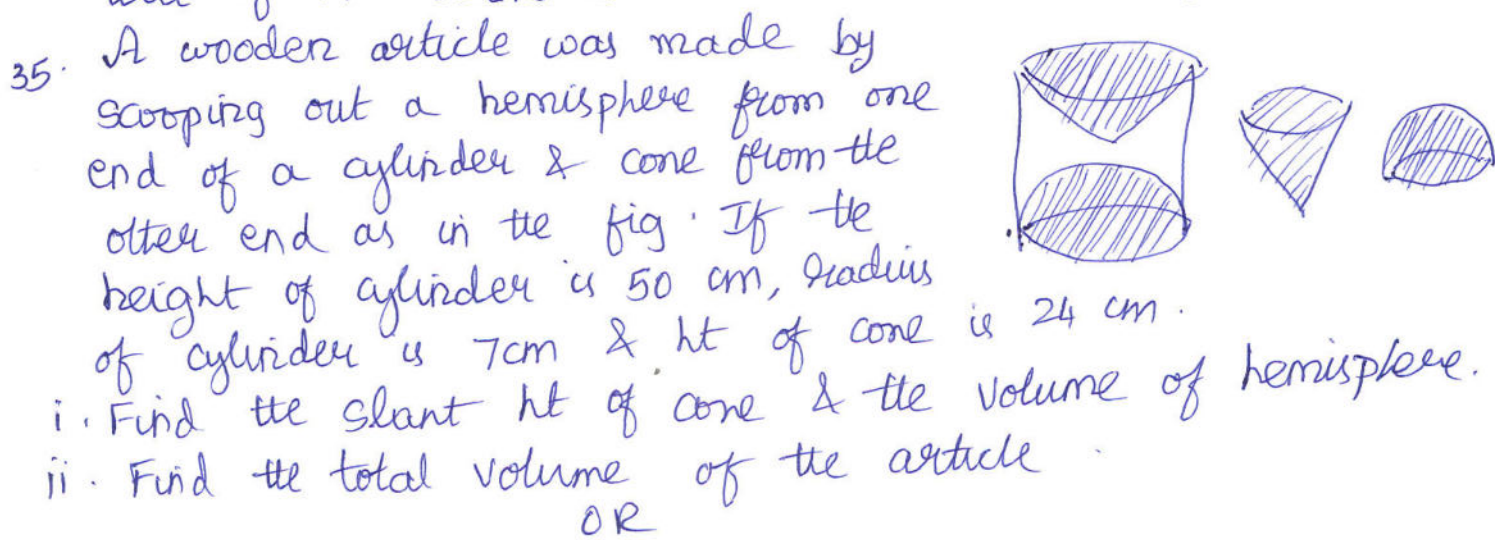 35. A wooden article was made by
scooping out a hemisphere from one
end of a cylinder & cone from the
other end as in the fig. If the
height of cylinder is 50 cm, radius
of cylinder is 7cm & ht of cone is 24 cm.
i. Find the slant ht of cone & the volume of hemisphere.
ii. Find the total volume of the article.
OR